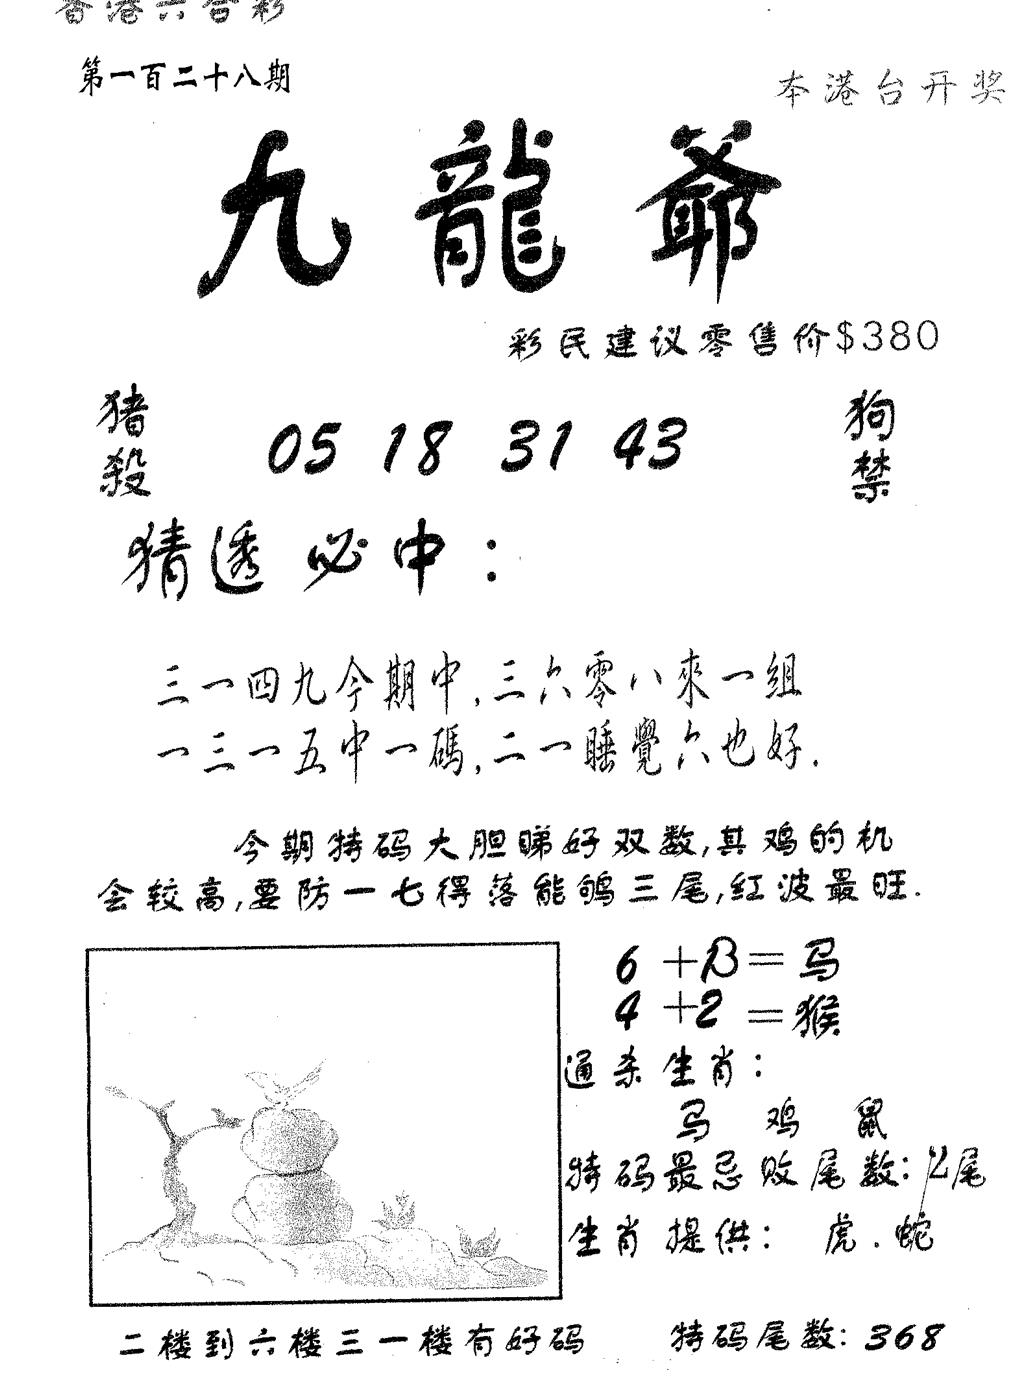 香港六合彩
第一百二十八期
本港台开奖
九龍爺
彩民建议零售价$380
猪殺
05 18 31 43
狗禁
猜透必中：
三一四九今期中,三六零八來一組
一三一五中一碼,二一睡覺六也好.
今期特码大胆睇好双数,其鸡的机
会较高,要防一七得落能鸲三尾,红波最旺.
6+13=马
4+2=猴
通杀生肖：
马 鸡 鼠
特码最忌败尾数：2尾
生肖提供：虎.蛇
二楼到六楼三一楼有好码
特码尾数：368